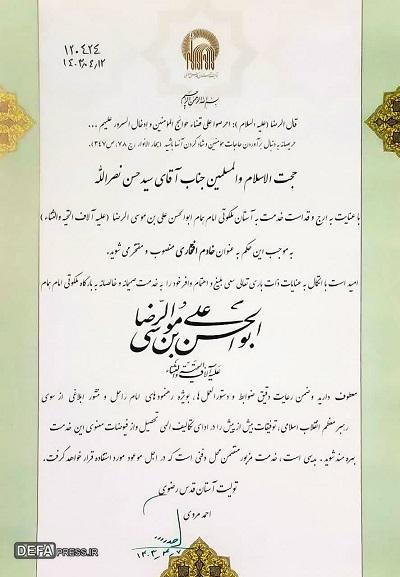 ۱۲۰۴۲۴
۱۴۰۳،۰۴،۱۲
بسم الله الرحمن الرحیم
قال الرضا (علیه السلام): احرصوا علی قضاء حوائج المؤمنین و ادخال السرور علیهم ...
حریصانه به دنبال برآوردن حاجات مؤمنین و شاد کردن آنها باشید (بحار الانوار ج ۷۸، ص ۳۴۷)
حجت الاسلام والمسلمین جناب آقای سید حسن نصرالله
با عنایت به ارج و قداست خدمت به آستان ملکوتی امام همام ابوالحسن علی بن موسی الرضا (علیه آلاف التحیه والثناء)
به موجب این حکم به عنوان خادم افتخاری منصوب و مفتخر می شوید.
امید است با اتکال به عنایات ذات باری تعالی سعی بلیغ و اهتمام وافر خود را به خدمت صمیمانه و خالصانه به بارگاه ملکوتی امام همام
ابوالحسن علی بن موسی الرضا
علیه آلاف التحیة والثناء
معطوف دارید و ضمن رعایت دقیق ضوابط و دستورالعمل ها، بویژه رهنمودهای امام راحل و منشور ابلاغی از سوی
رهبر معظم انقلاب اسلامی، توفیقات بیش از پیش را در ادای تکالیف الهی تحصیل و از فیوضات معنوی این خدمت
بهره مند شوید. بدیهی است، خدمت مزبور متضمن محل دفنی است که در اجل موعود مورد استفاده قرار خواهد گرفت.
تولیت آستان قدس رضوی
احمد مروی
۱۴۰۳،۴،۷
DEFAPRESS.IR